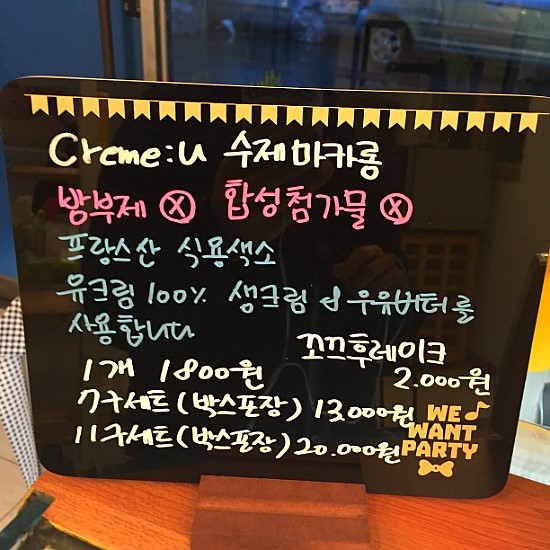 Creme:u 수제마카롱
방부제 ⓧ 합성첨가물 ⓧ
프랑스산 식용색소
유크림 100% 생크림 & 우유버터를
사용합니다
꼬끄후레이크
1개 1800원
2.000원
7구세트(박스포장) 13.000원
11구세트(박스포장) 20.000원
WE
WANT
PARTY